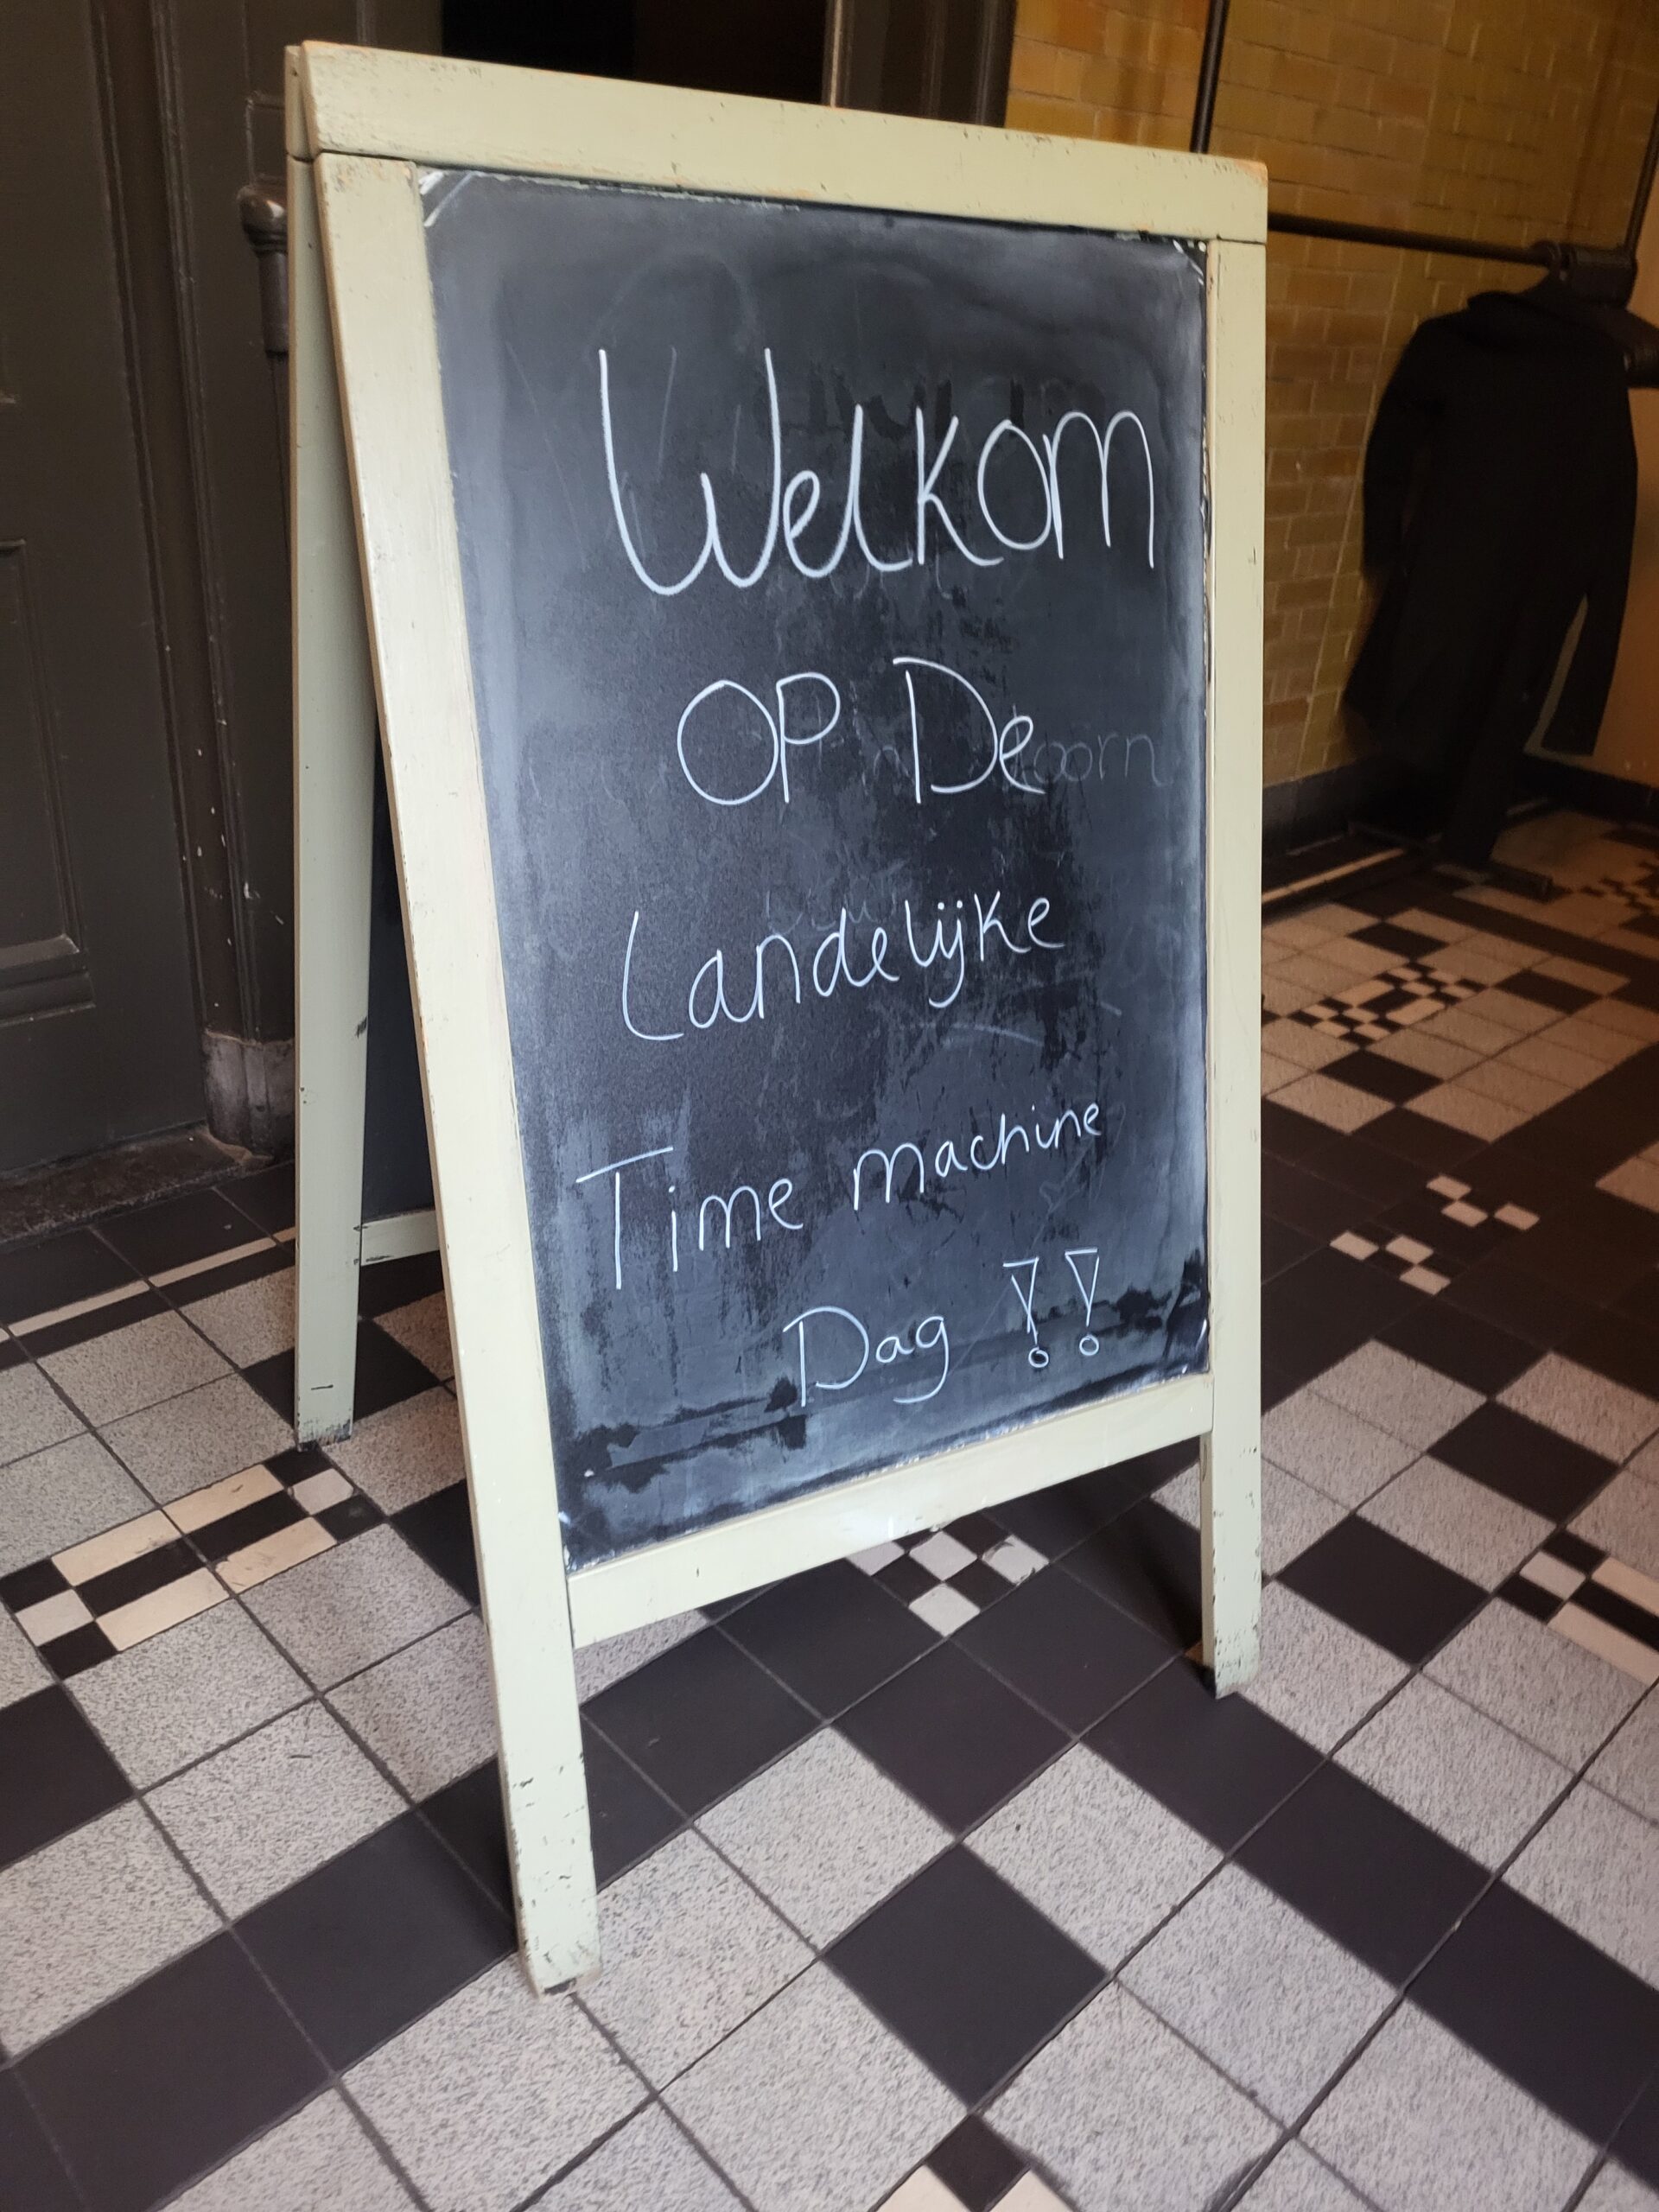 Welkom
OP De
Landelijke
Time machine
Dag !!